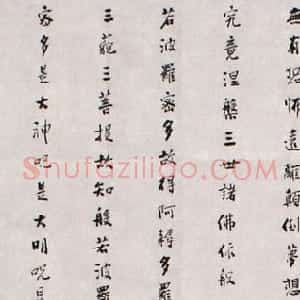 無有恐怖遠離顛倒夢想
究竟涅槃三世諸佛依般
若波羅密多故得阿耨多羅
三藐三菩提故知般若波羅
密多是大神呪是大明呪是
Shufaziliao.COM